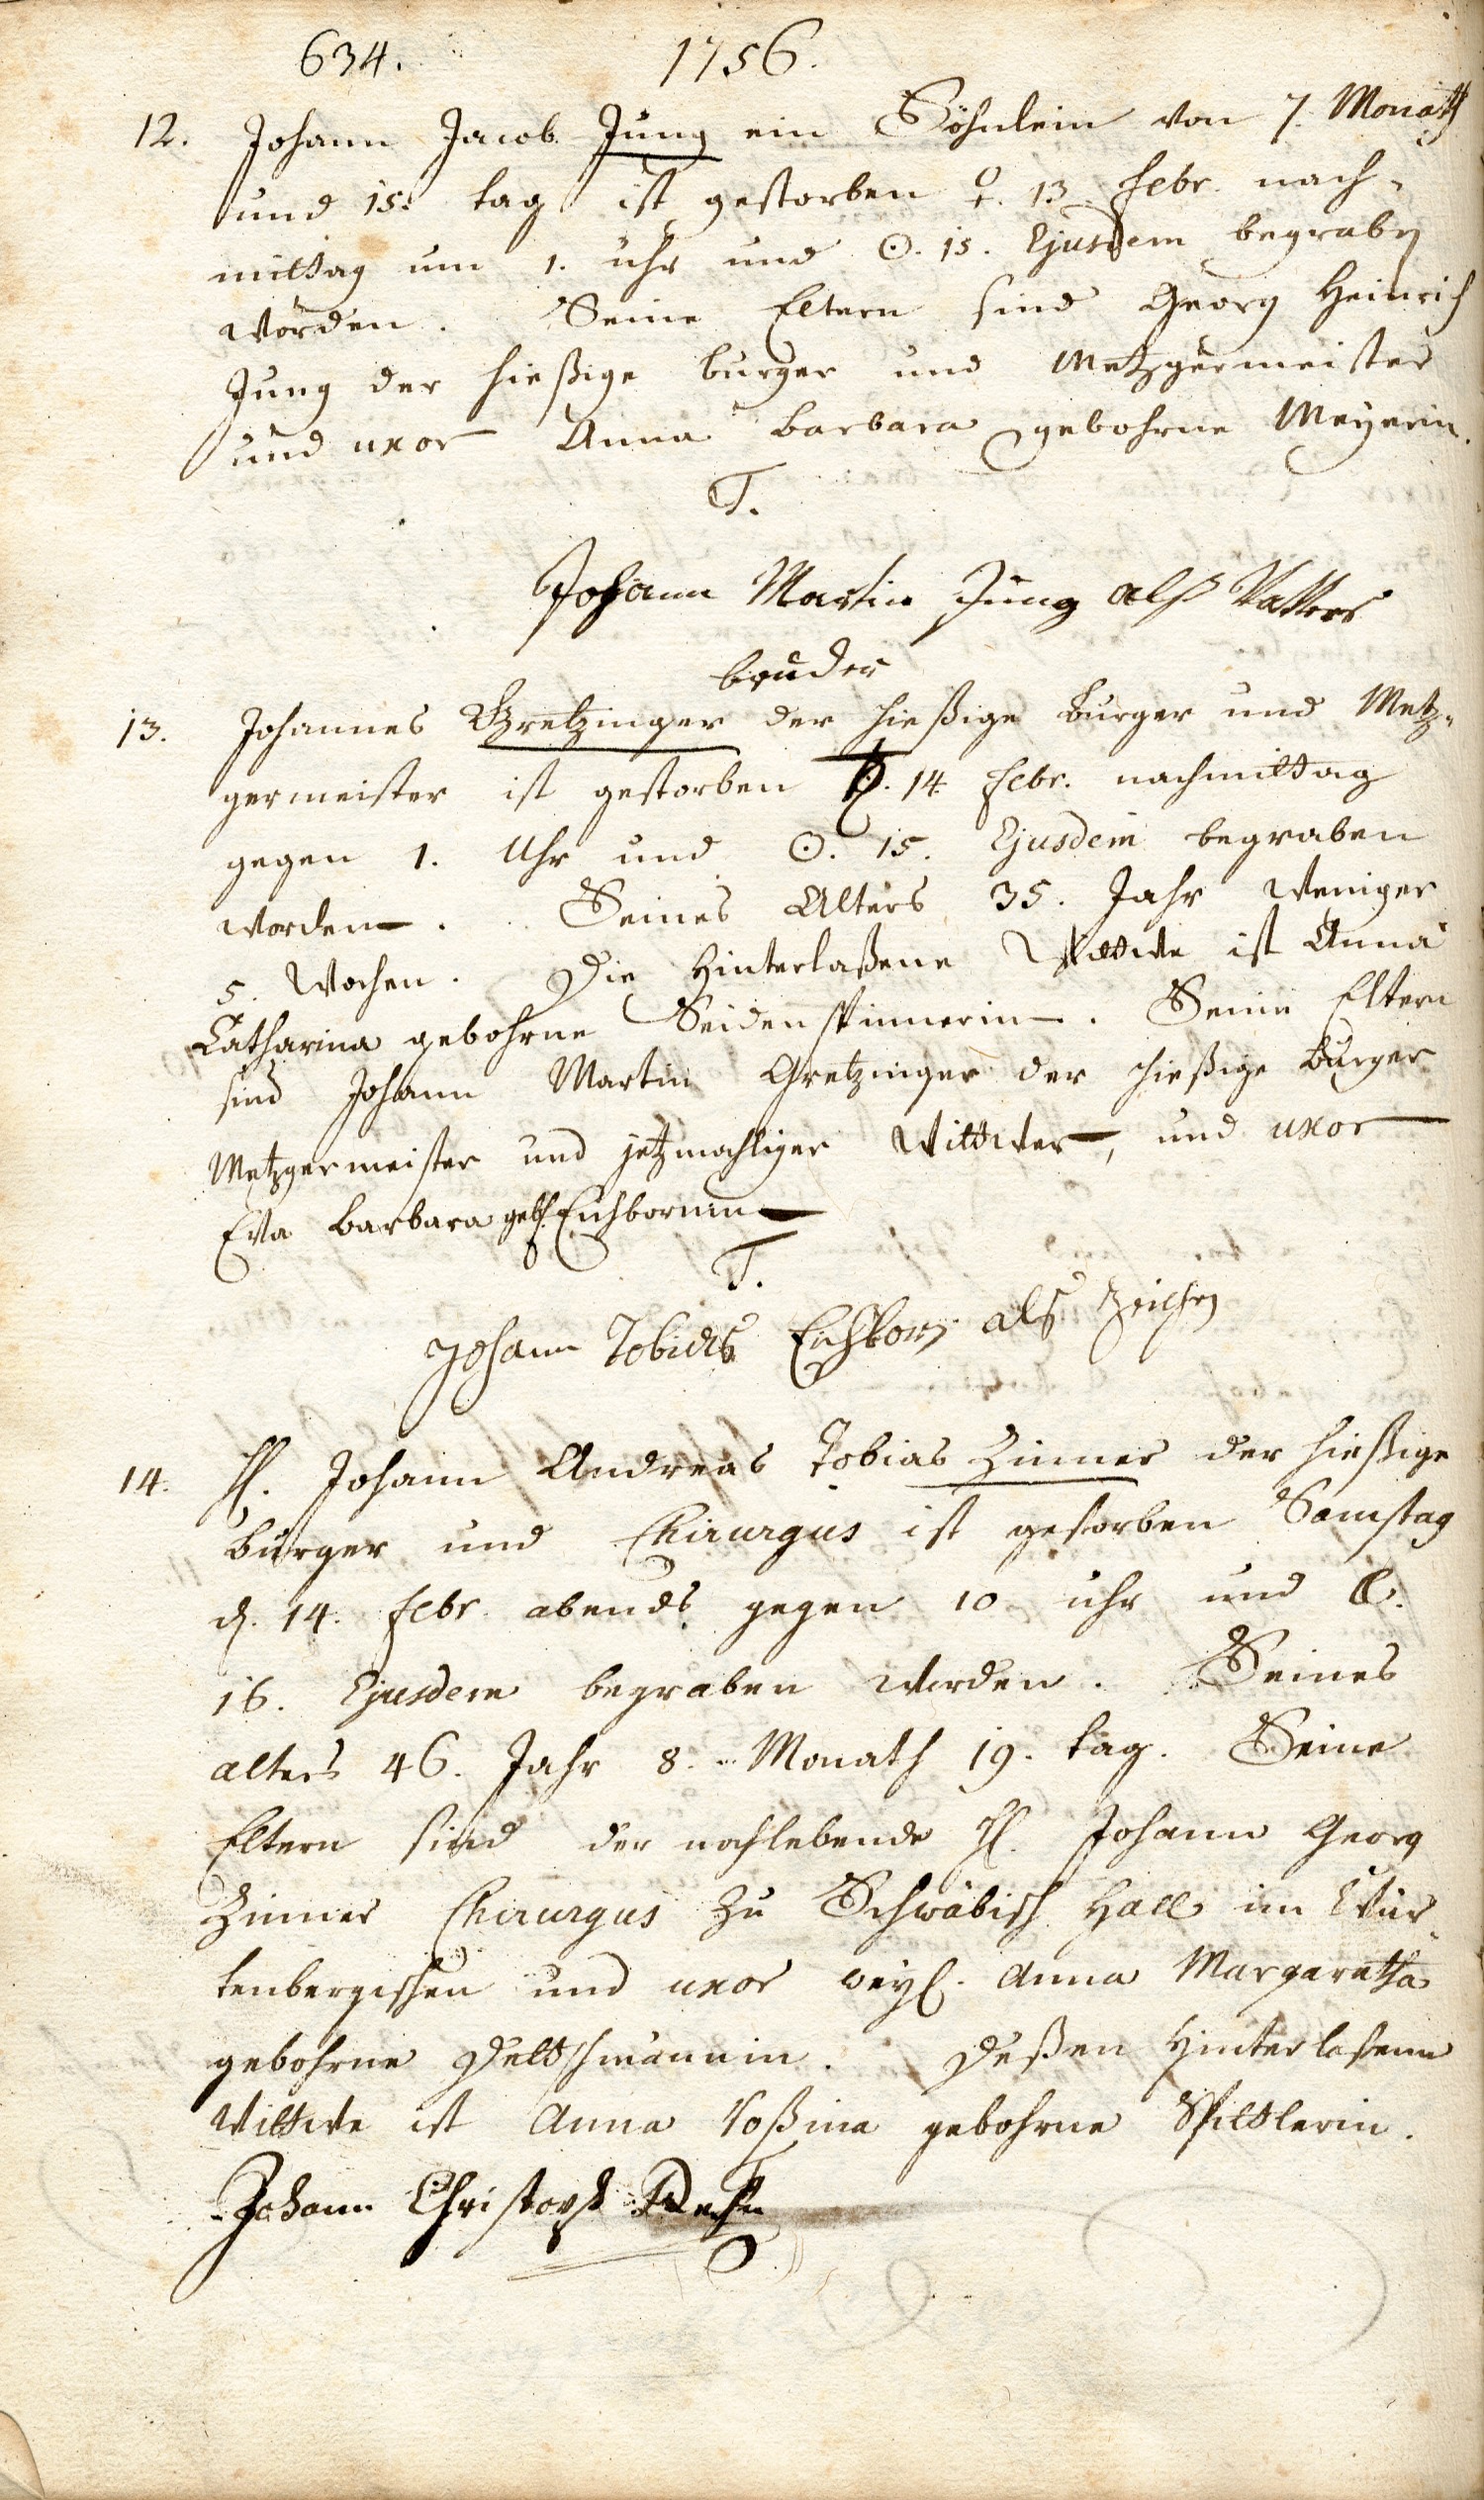 634. 1756.
12. Johann Jacob Jung ein Söhnlein von 7. Monath
und 15. tag ist gestorben ♀. 13 Febr. nach-
mittag um 1. uhr und ☉. 15. Ejusdem begraben
worden. Seine Eltern sind Georg Heinrich
Jung der hießige burger und Metzgermeister
und uxor Anna barbara gebohrne Meyerin.
T.
Johann Martin Jung alß Vatters
bruder
13. Johannes Gretzinger der hießige burger und Metz-
germeister ist gestorben ♄. 14 Febr. nachmittag
gegen 1. Uhr und ☉. 15. Ejusdem begraben
worden. Seines Alters 35. Jahr weniger
5. Wochen. Die Hinterlaßene Wittwe ist Anna
Catharina gebohrne Seidenspinnerin. Seine Eltern
sind Johann Martin Gretzinger der hießige Burger
Metzgermeister und jetzmahliger Wittwer, und uxor
Eva barbara gebh. Eichbornin
T.
Johann Tobias Eichborn als Zeichen
14. H. Johann Andreas Tobias Zinner der hießige
burger und Chirurgus ist gestorben Samstag
d. 14. Febr. abends gegen 10 uhr und ☾.
16. Ejusdem begraben worden. Seines
alters 46. Jahr 8. Monath 19. tag. Seine
Eltern sind der nochlebende H. Johann Georg
Zinner Chirurgus zu Schwäbisch Hall im Wür-
tenbergischen und uxor weyl. Anna Margaretha
gebohrne Deltschmännin. Deßen Hinterlaßene
Wittwe ist Anna Roßina gebohrne Spittlerin.
Johann Christoph